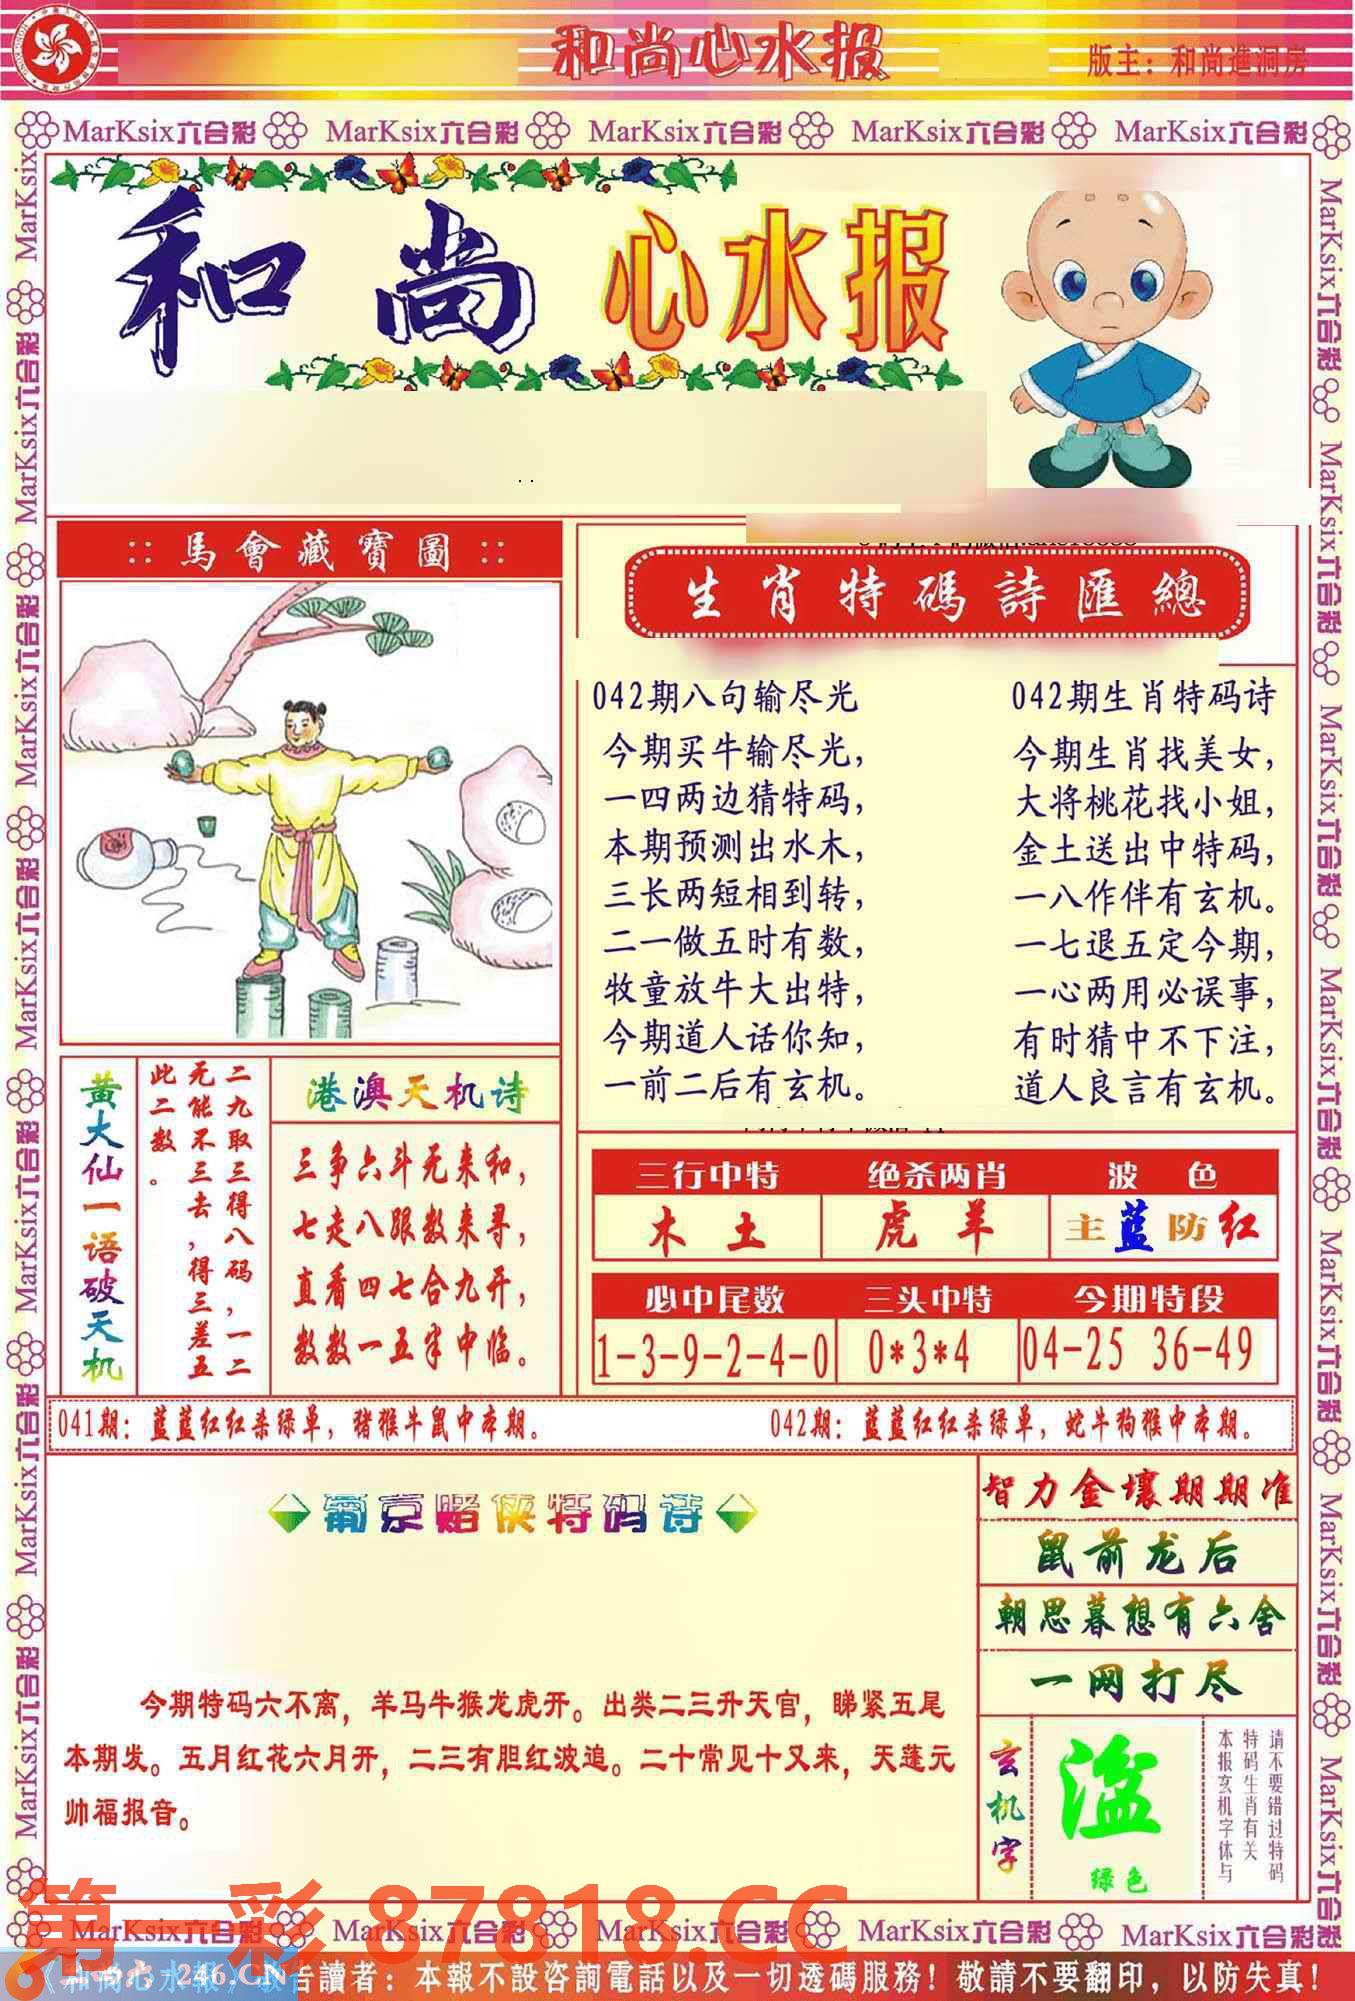 和尚心水报
版主：和尚進洞房
MarKsix六合彩 MarKsix六合彩 MarKsix六合彩 MarKsix六合彩 MarKsix六合彩
和尚 心水报
:: 馬會藏寶圖 ::
生肖特碼詩匯總
042期八句输尽光
今期买牛输尽光，
一四两边猜特码，
本期预测出水木，
三长两短相到转，
二一做五时有数，
牧童放牛大出特，
今期道人话你知，
一前二后有玄机。
042期生肖特码诗
今期生肖找美女，
大将桃花找小姐，
金土送出中特码，
一八作伴有玄机。
一七退五定今期，
一心两用必误事，
有时猜中不下注，
道人良言有玄机。
黄大仙一语破天机
二九取三得八码，一二
无能不三去，得三差五
此二数。
港澳天机诗
三争六斗无来和，
七走八跟数来寻，
直看四七合九开，
数数一五半中临。
三行中特 绝杀两肖 波色
木土 虎羊 主蓝防红
必中尾数 三头中特 今期特段
1-3-9-2-4-0 0*3*4 04-25 36-49
041期：蓝蓝红红杀绿单，猪猴牛鼠中本期。
042期：蓝蓝红红杀绿单，蛇牛狗猴中本期。
葡京赌侠特码诗
今期特码六不离，羊马牛猴龙虎开。出类二三升天官，睇紧五尾
本期发。五月红花六月开，二三有胆红波追。二十常见十又来，天蓬元
帅福报音。
智力金壤期期准
鼠前龙后
朝思暮想有六舍
一网打尽
玄机字
湓
绿色
请不要错过特码
特码生肖有关
本报玄机字体与
第一彩 87818.CC
MarKsix六合彩 MarKsix六合彩 MarKsix六合彩 MarKsix六合彩 MarKsix六合彩
246.CN
告讀者：本報不設咨詢電話以及一切透碼服務！敬請不要翻印，以防失真！